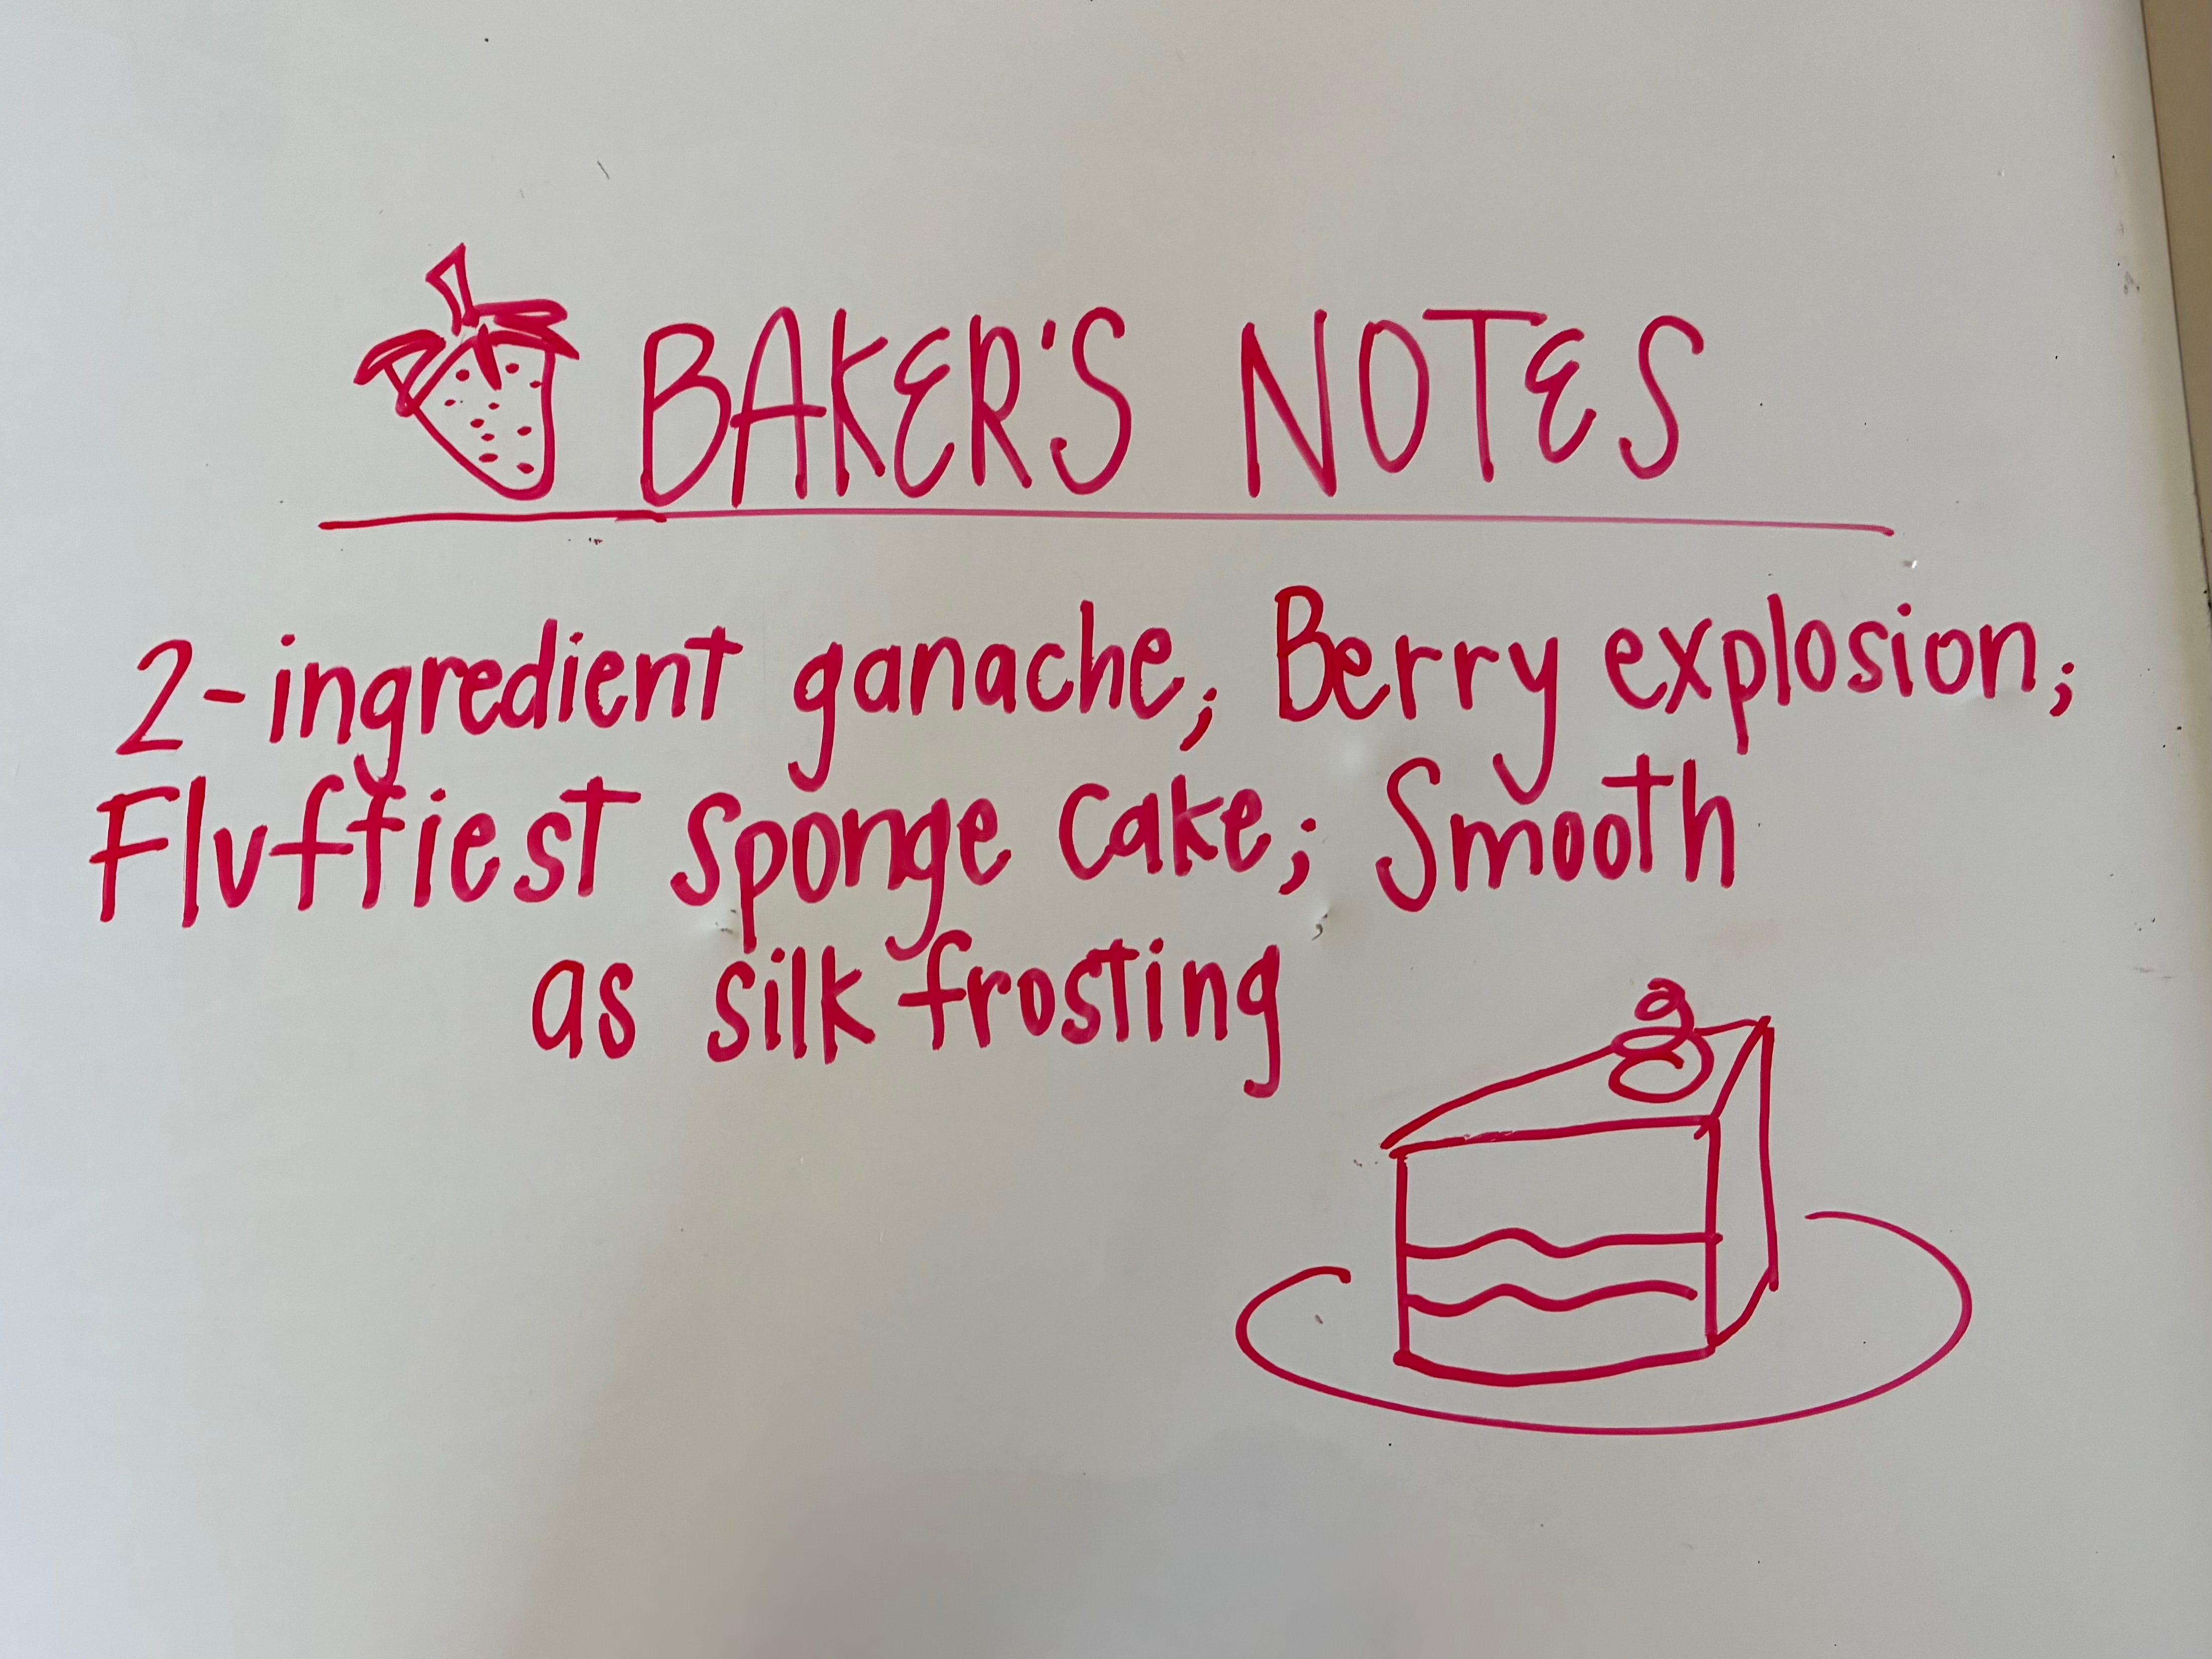 BAKER'S NOTES
2-ingredient ganache; Berry explosion;
Fluffiest sponge cake; Smooth
as silk frosting